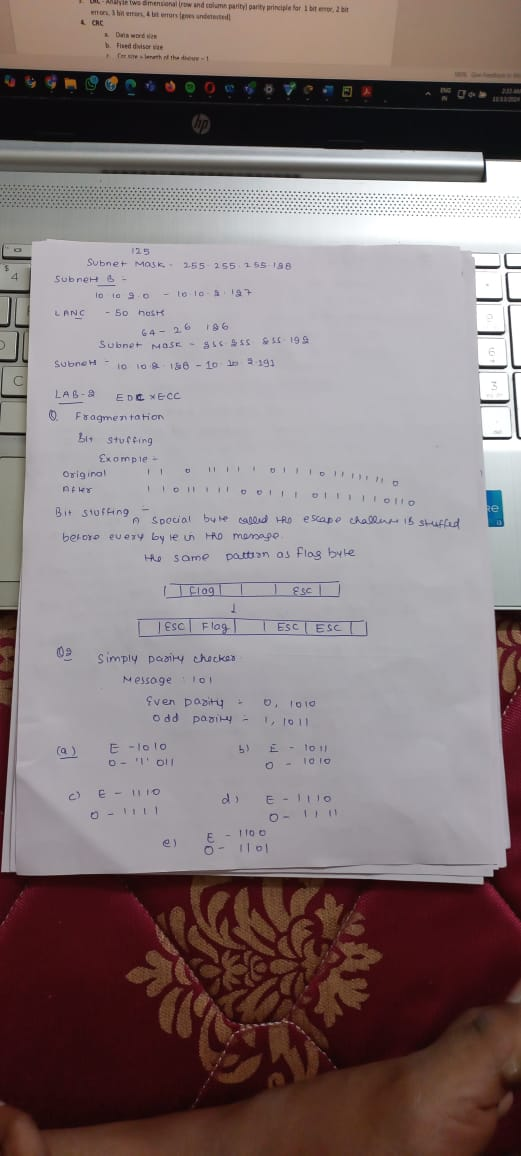 3. LRC - Analyse two dimensional (row and column parity) parity principle for 1 bit error, 2 bit
errors, 3 bit errors, 4 bit errors (goes undetected)
4. CRC
a. Data word size
b. Fixed divisor size
ENG
IN
2:33 AM
hp
125
Subnet Mask - 255. 255. 255. 128
Subnet B -
10 10 2.0 - 10.10.2.127
LANC - 50 hosts
64 - 26 186
Subnet Mask - 255. 255 255. 192
Subnet - 10 10 2. 128 - 10. 10 2.191
LAB-2 EDC & ECC
Q. Fragmentation
Bit Stuffing
Example -
Original 1 1 0 1 1 1 1 0 1 1 1 0 1 1 1 1 1 1 0
After 1 1 0 1 1 1 1 0 0 1 1 1 0 1 1 1 1 1 0 1 1 0
Bit stuffing -
A special byte called the escape is stuffed
before every byte in the message.
the same pattern as flag byte
Flag ESC
↓
ESC Flag ESC ESC
Q2 Simply parity checker
Message : 101
Even parity - 0, 1010
Odd parity - 1, 1011
(a) E - 1010 b) E - 1011
O - '1' 011 O - 1010
c) E - 1110 d) E - 1110
O - 1111 O - 1111
e) E - 1100
O - 1101
$
4
C
6
3